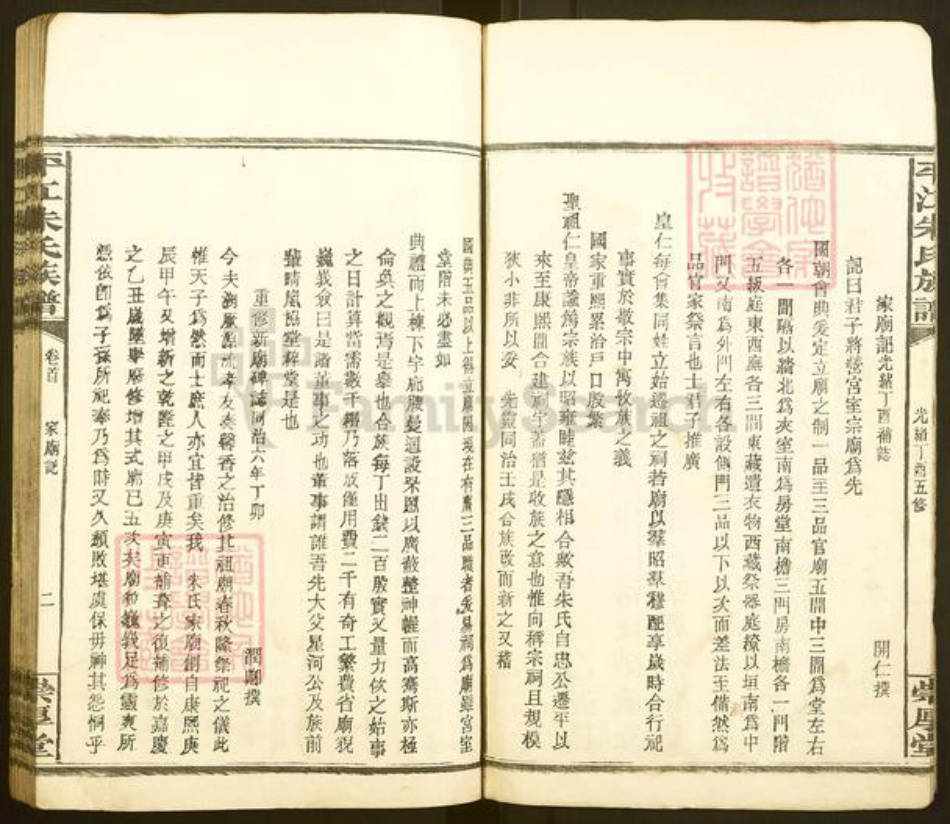 平江朱氏族譜
光緒丁酉五修
崇厚堂
家廟記光緒丁酉補誌
開仁撰
記曰君子將營宮室宗廟爲先
國朝會典爰定立廟之制一品至三品官廟五間中三間爲堂左右
各一間隔以牆北爲夾室南爲房堂南檐三門房南檐各一門階
五級庭東西廡各三間東藏遺衣物西藏祭器庭繚以垣南爲中
門又南爲外門左右各設側門三品以下以次而差法至備然爲
品官家祭言也士君子推廣
皇仁每會集同姓立始遷祖之祠若廟以羣昭羣穆配享歲時合行祀
事實於敬宗中寓收族之義
國家重熙累洽戶口殷繁
聖祖仁皇帝諭篤宗族以昭雍睦茲其隱相合歟吾朱氏自忠公遷平以
來至康熙間合建祠宇蓋猶是收族之意也惟向稱宗祠且規模
狹小非所以妥 先靈同治壬戌合族改而新之又稽
國典五品以上得立廟閤現在有膺三品職者爰易祠爲廟雖宮室
堂階未必盡如
典禮而上棟下宇庖廚曼迴設罘罳以廣蔽整神幄而高騫斯亦極
侖奐之觀焉是舉也合族每丁出錢二百殷實又量力佽之始事
之日計算當需數千緡乃落成僅用費二千有奇工繁費省廟貌
巍峩僉曰是諸董事之功也董事謂誰吾先大父星河公及族前
輩晴嵐協堂粹堂是也
重修新廟碑誌同治六年丁卯
潤蘭撰
今夫溯厥源流孝友奏馨香之治修其祖廟春秋隆祭祀之儀此
惟天子爲然而士庶人亦宜皆重矣我 朱氏家廟創自康熙庚
辰甲午又增新之乾隆之甲戌及庚寅重補葺之復補修於嘉慶
之乙丑咸豐辛亥修增其式廓已五次矣廟貌巍峩足爲靈爽所
憑依卽爲子孫所祀奉乃爲時又久頹敗堪虞保毋神其怨恫乎
平江朱氏族譜
卷首
家廟記
二
崇厚堂
FamilySearch